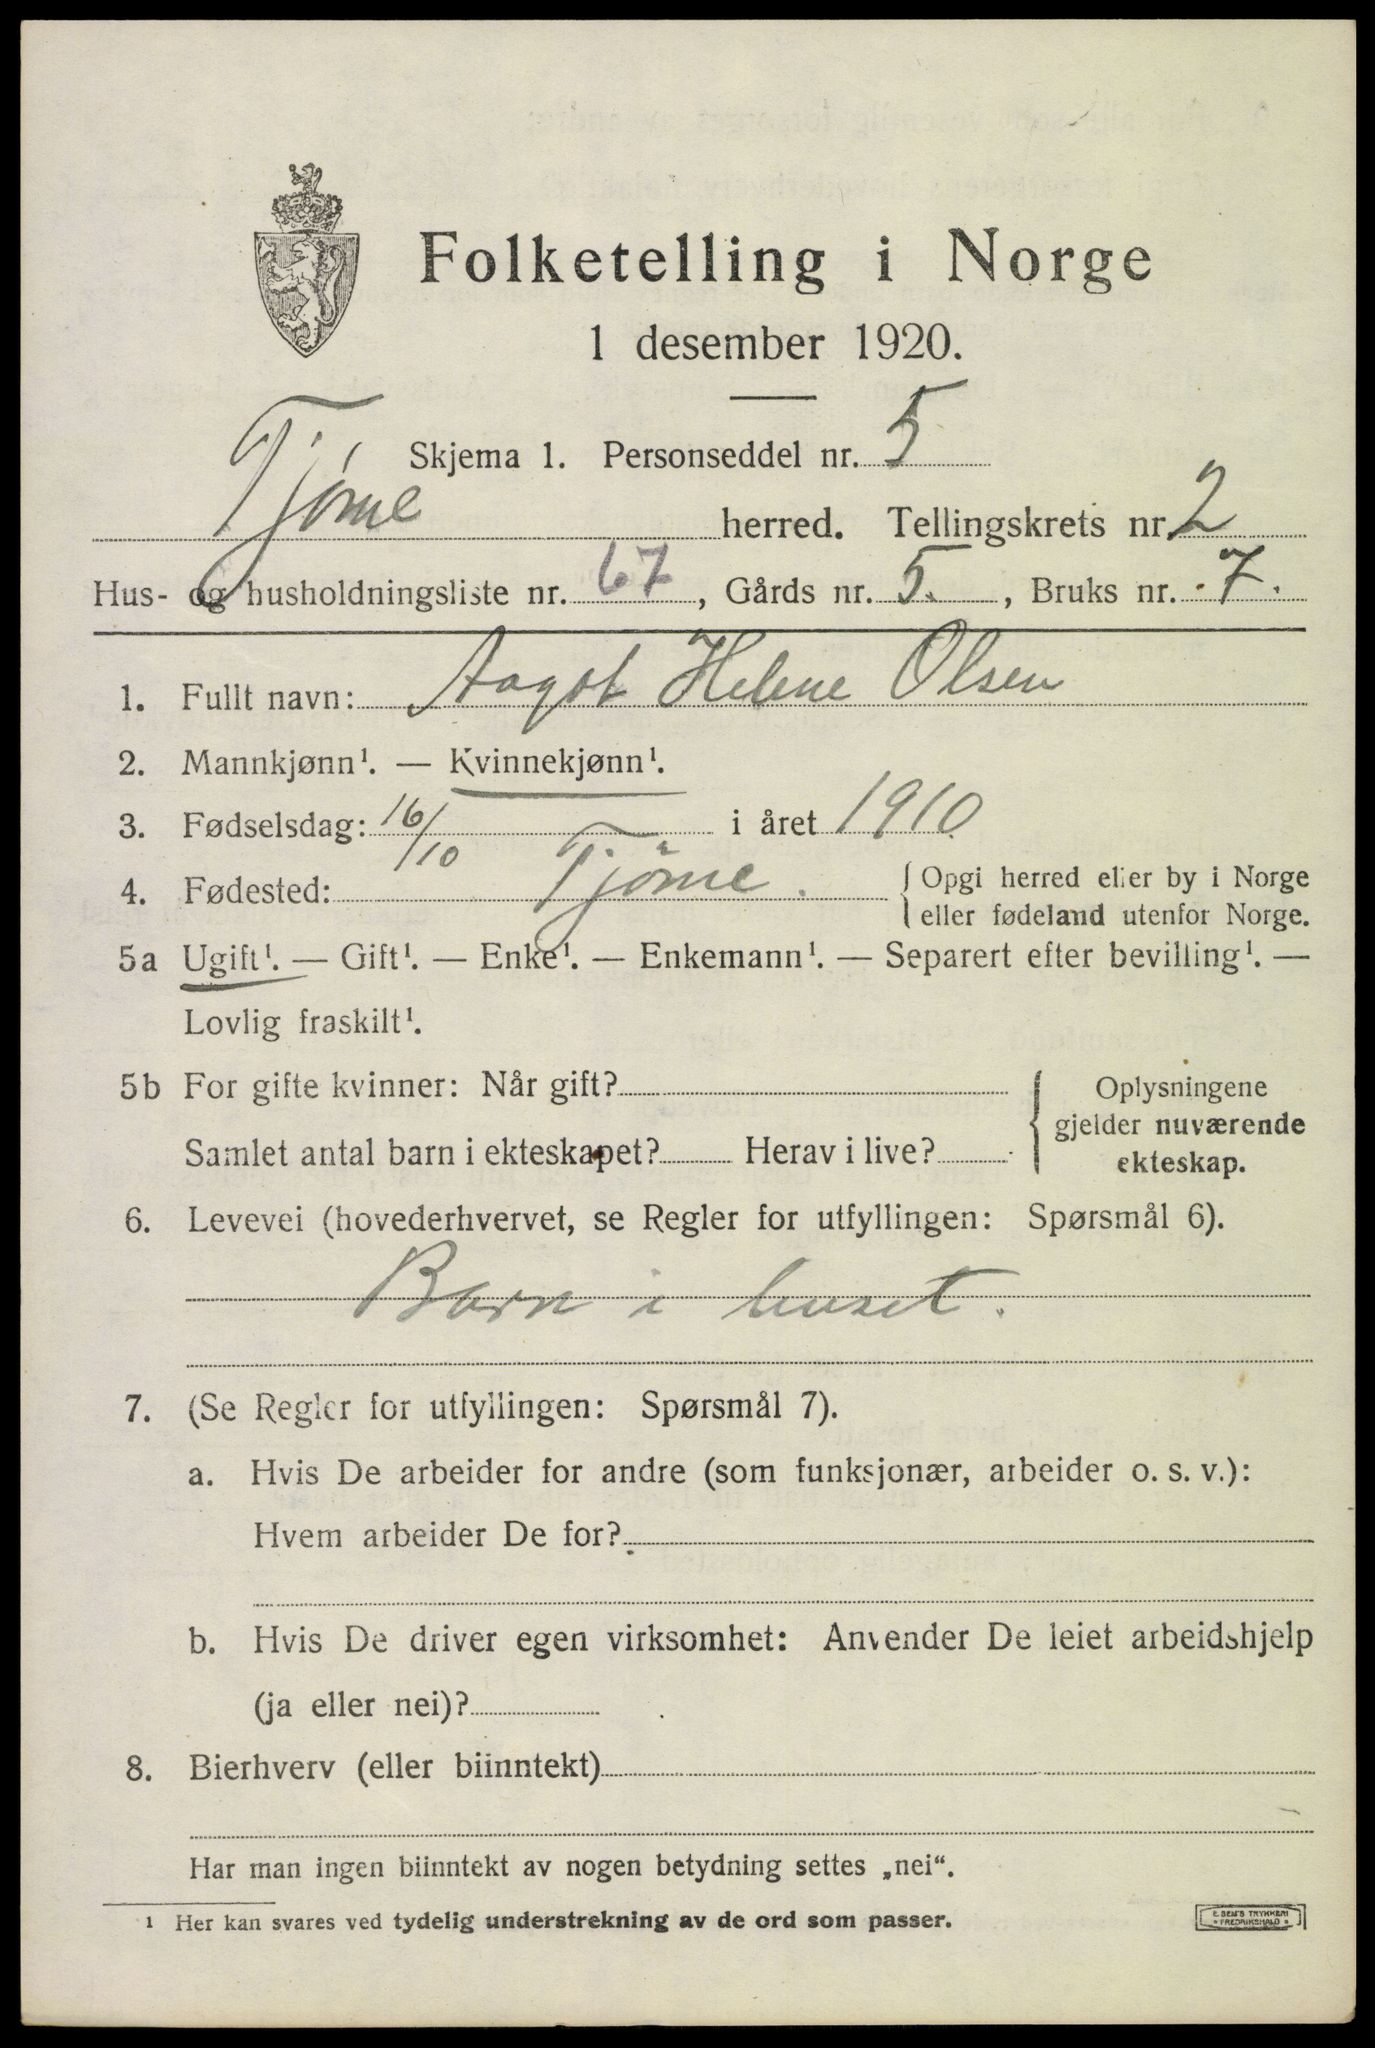 Folketelling i Norge
1 desember 1920.
Skjema 1. Personseddel nr. 5
Tjøme herred. Tellingskrets nr. 2
Hus- og husholdningsliste nr. 67, Gårds nr. 5., Bruks nr. 7.
1. Fullt navn: Aagot Helene Olsen
2. Mannkjønn¹. — Kvinnekjønn¹.
3. Fødselsdag: 16/10 i året 1910
4. Fødested: Tjöme. { Opgi herred eller by i Norge
eller fødeland utenfor Norge.
5a Ugift¹. — Gift¹. — Enke¹. — Enkemann¹. — Separert efter bevilling¹. —
Lovlig fraskilt¹.
5b For gifte kvinner: Når gift? { Oplysningene
gjelder nuværende
Samlet antal barn i ekteskapet? Herav i live? ekteskap.
6. Levevei (hovederhvervet, se Regler for utfyllingen: Spørsmål 6).
Barn i huset.
7. (Se Regler for utfyllingen: Spørsmål 7).
a. Hvis De arbeider for andre (som funksjonær, arbeider o. s. v.):
Hvem arbeider De for?
b. Hvis De driver egen virksomhet: Anvender De leiet arbeidshjelp
(ja eller nei)?
8. Bierhverv (eller biinntekt)
Har man ingen biinntekt av nogen betydning settes „nei“.
¹ Her kan svares ved tydelig understrekning av de ord som passer.
E. SEM'S TRYKKERI
FREDRIKSHALD